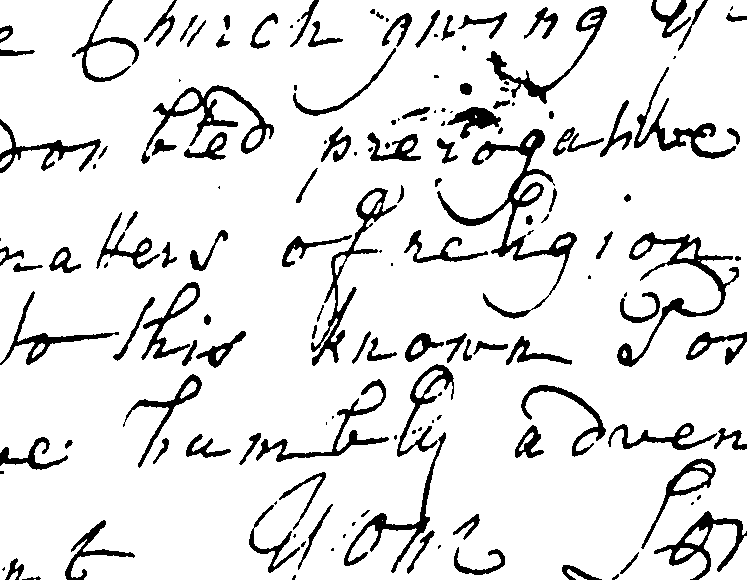 Church giving y
doubted prerogative
matters of religion,
to this known Pos
humbly adven
Your Lor